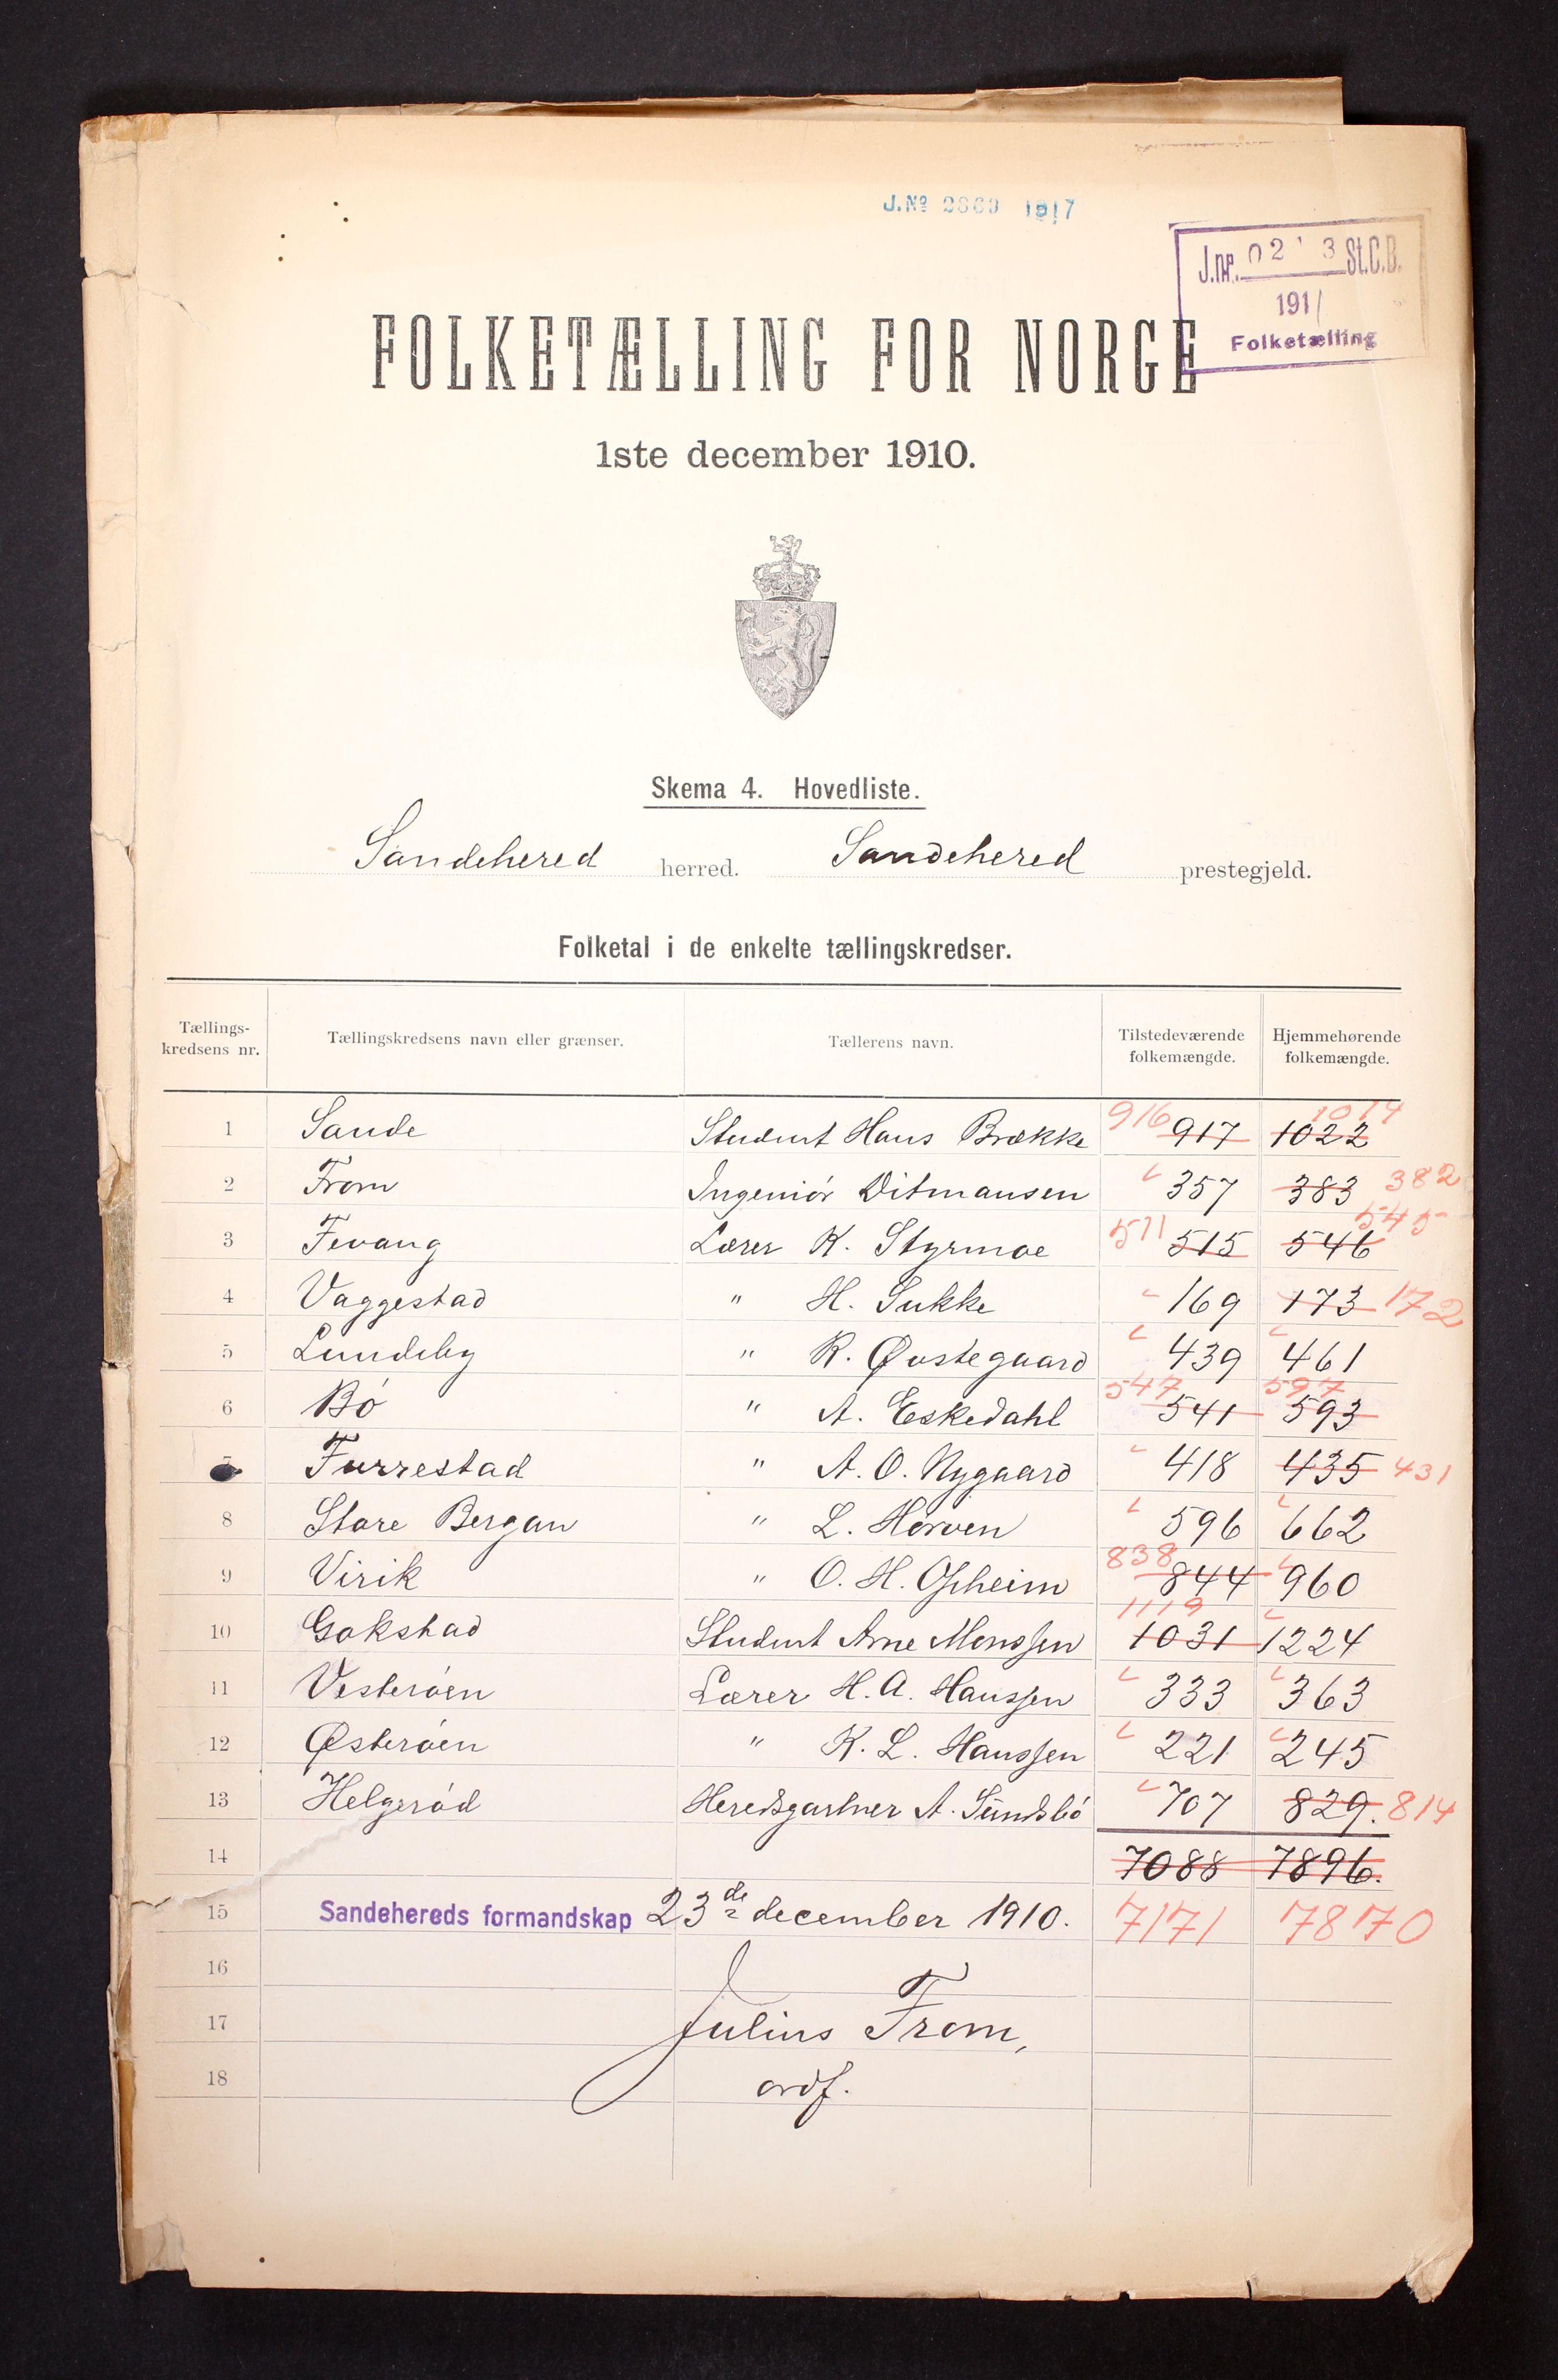 J.Nº 2669 1917
J.nr. 02 3 St.C.B.
1911
Folketælling
FOLKETÆLLING FOR NORGE
1ste december 1910.
Skema 4. Hovedliste.
Sandehered herred. Sandehered prestegjeld.
Folketal i de enkelte tællingskredser.
Tællings-kredsens nr. Tællingskredsens navn eller grænser. Tællerens navn. Tilstedeværende folkemængde. Hjemmehørende folkemængde.
1 Sande Student Hans Brække 916 917 1022 1014
2 From Ingeniór Ditmansen 357 383 382
3 Fevang Lærer K. Styrmoe 511 515 546 545
4 Vaggestad " H. Sukke 169 173 172
5 Lundeby " R. Øvstegaard 439 461
6 Bó " A. Eskedahl 547 541 593 597
7 Furrestad " A. O. Nygaard 418 435 431
8 Store Bergan " L. Horven 596 662
9 Virik " O. H. Opheim 838 844 960
10 Gokstad Student Arne Monssen 1119 1031 1224
11 Vesteróen Lærer H. A. Hanssen 333 363
12 Østeróen " K. L. Hanssen 221 245
13 Helgeród Heredsgartner A. Sundsbó 707 829. 814
14 7088 7896.
15 Sandehereds formandskap 23de december 1910. 7171 7870
16
17 Julius From,
18 ordf.